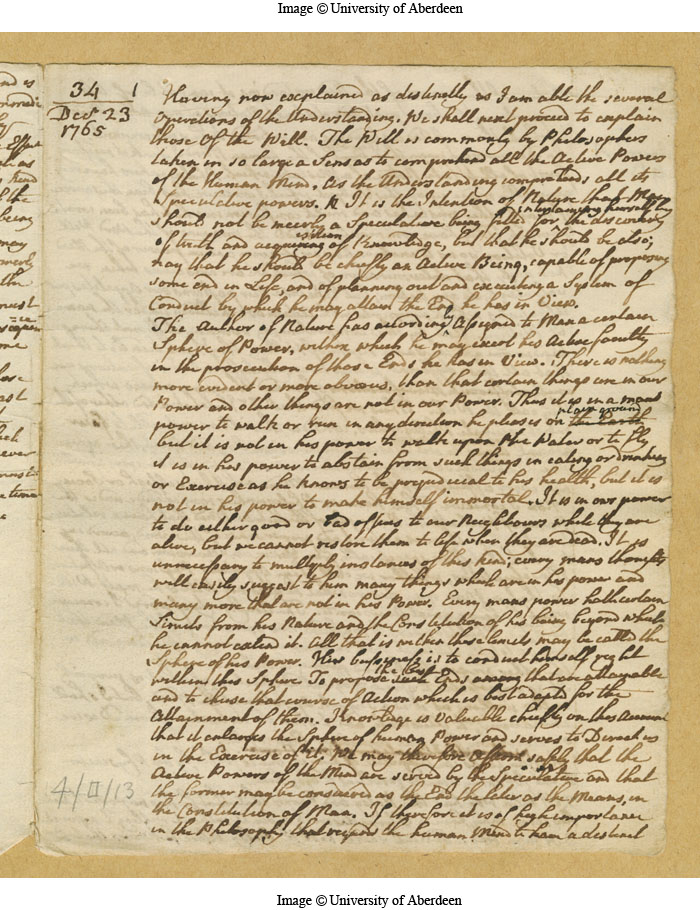 Image © University of Aberdeen
34 1
Decr 23
1765
Having now explained as distinctly as I am able the several
Operations of the Understanding. We shall next proceed to explain
those Of the Will. The Will is commonly by Philosophers
taken in so large a Sense as to comprehend all the Active Powers
of the Human Mind. As the Understanding comprehends all its
Speculative powers. It is the Intention of Nature that Man
should not be meerly a Speculative being fitted for the discovery
of truth and acquiring of Knowledge, but that he should be also;
nay that he should be chiefly an Active Being, capable of proposing
some end in Life, and of planning out and executing a System of
Conduct by which he may attain the End he has in View.
The Author of Nature has according Assigned to Man a certain
Sphere of Power, within which he may exert his Active faculty
in the prosecution of those Ends he has in View. There is nothing
more evident or more obvious, than that certain things are in our
Power and other things are not in our Power. Thus it is in a mans
plain ground
power to walk or run in any direction he pleases on the Earth
but it is not in his power to walk upon the Water or to fly
it is in his power to abstain from such things in eating or drinking
or Exercise as he knows to be prejudicial to his health, but it is
not in his power to make himself immortal. It is in our power
to do either good or bad offices to our Neighbours while they are
alive, but we cannot restore them to life when they are dead. It is
unnecessary to multiply instances of this kind; every mans thoughts
will easily suggest to him many things which are in his power and
many more that are not in his Power. Every mans power hath certain
Limits from his Nature and the Constitution of his being beyond which
he cannot extend it. All that is within these limits may be called the
Sphere of his Power. His bussiness is to conduct himself right
the best
within this Sphere To propose such Ends among that are attainable
and to chuse that course of Action which is best adapted for the
Attainment of them. Knowledge is valuable chiefly on this Account
that it enlarges the Sphere of human Power and serves to Direct us
in the Exercise of it. We may therefore safely that the
Active Powers of the Mind are served by the Speculative and that
the former may be considered as the End the later as the Means, in
the Constitution of Man. If therefore it is of high importance
in the Philosophy that respects the human Mind to have a distinct
4/II/13
Image © University of Aberdeen